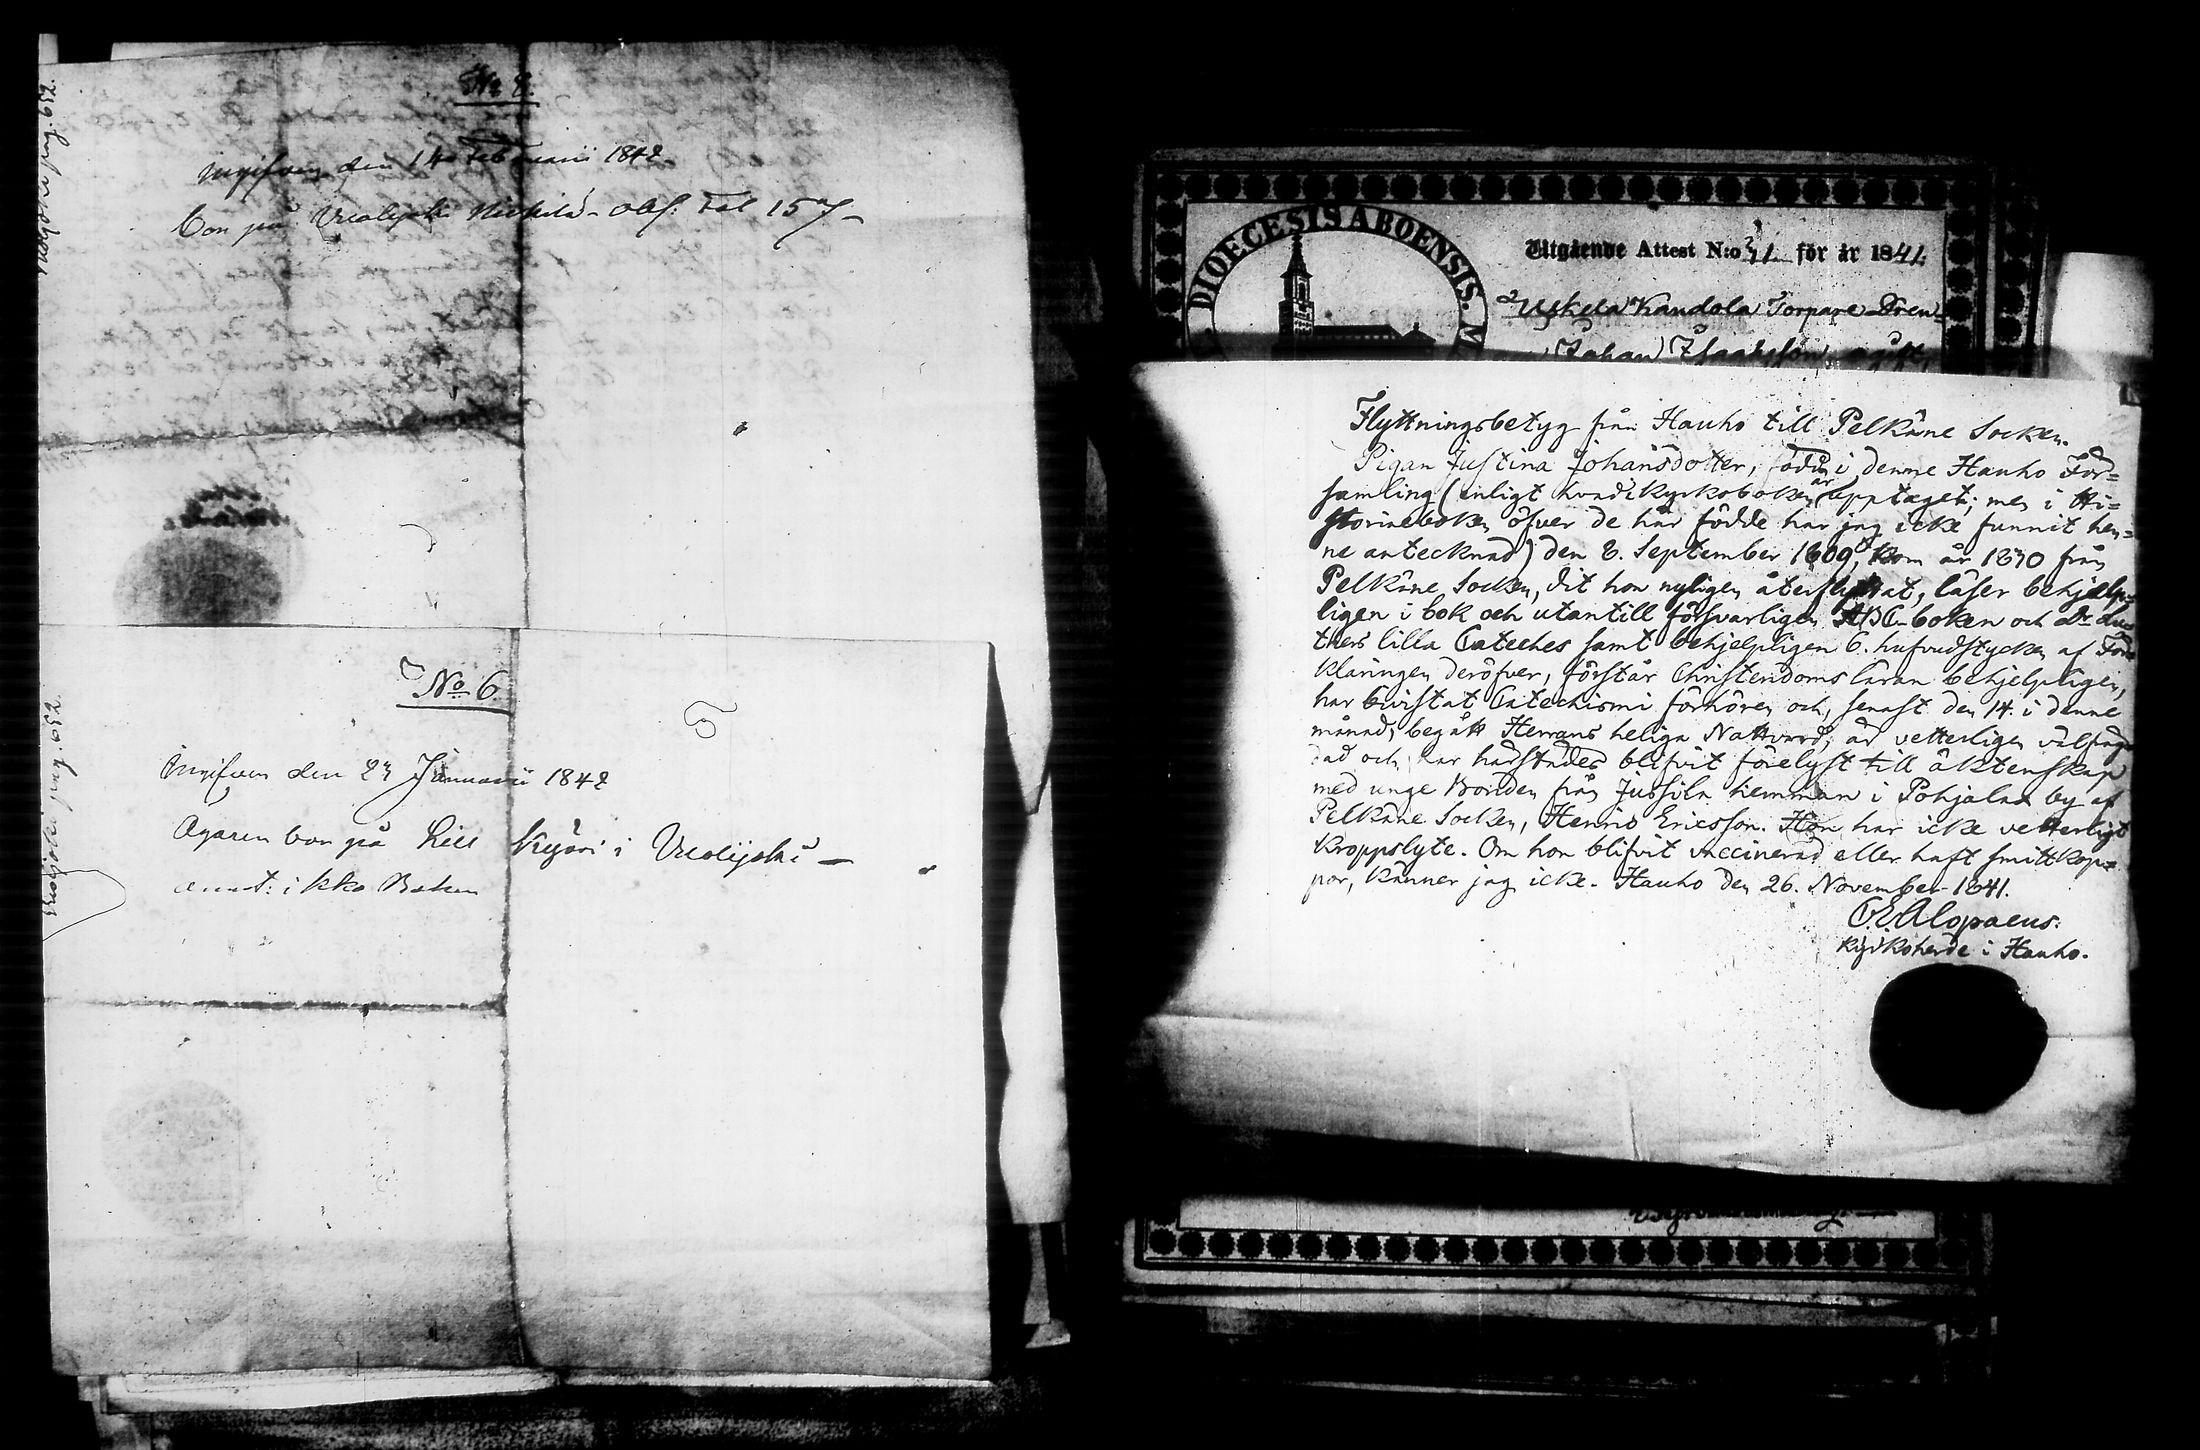 No 8.
Ingifven den 14 Februarii 1842.
bon på Uralijoki
No 6.
Ingifven den 23 Januarii 1842
Ägaren bor på Lill Kyöri i
DIOECESIS ABOENSIS.
Utgående Attest N:o 31 för år 1841.
Uskela Kandola Torpare Dren=
Johan Isaaksson
Flyttningsbetyg från Hauho till Pelkäne Socken.
Pigan Justina Johansdotter, född i denne Hauho För=
samling (enligt hvad i kyrkoboken är upptaget; men i Hi=
storieboken öfver de här födde har jag icke funnit hen=
ne antecknad) den 8. September 1809, kom år 1830 från
Pelkäne Socken, dit hon nyligen återflyttat, läser behjelp=
ligen i bok och utantill försvarligen ABC-boken och Dr Lu=
thers lilla Cateches samt behjelpligen 6. hufvudstycken af För=
klaringen deröfver, förstår Christendoms läran behjelpligen,
har bivistat Catechismi förhören och, senast den 14. i denne
månad, begått Herrans heliga Nattvard, är vetterligen välfräg=
dad och har härstädes blifvit förelyst till äktenskap
med unge Bonden från Jussila hemman i Pohjalax by af
Pelkäne Socken, Henric Ericsson. Hon har icke vetterligt
kroppslyte. Om hon blifvit vaccinerad eller haft smittkop=
por, känner jag icke. Hauho den 26. November 1841.
C. E. Alopaeus.
Kyrkoherde i Hauho.